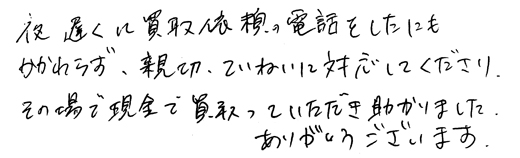 夜遅くに買取依頼の電話をしたにも
かかわらず、親切、ていねいに対応してくださり、
その場で現金で買取っていただき助かりました.
ありがとうございます.